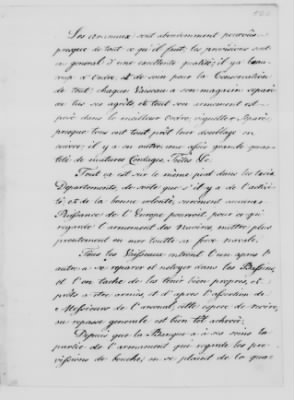 Les arsenaux sont abondamment pourvus
presque de tout ce qu'il faut; les provisions sont
en general d'une excellente qualité; il y a beau-
coup d'ordre et de soin pour la Conservation
de tout; chaque Vaisseau a son magazin separé
de tous ses agrès et tout son armement est
posé dans le meilleur ordre,
presque tous ont tout prêt leur doublage en
cuivre; il y a en outre une assez grande quan-
tité de matures Cordages, Toiles &c.
Tout ça est sur le même pied dans les trois
Departements de sorte que s'il y a de l'activi-
té, et de la bonne volonté, rarement aucune
Puissance de l'Europe pourroit, pour ce qui
regarde l'armement des Navires, mettre plus
promtement en mer toutte sa force navale.
Tous les Vaisseaux entrent l'un après l'
autre a se reparer et netoyer dans les Bassins,
et l'on tache de les tenir bien propres, et
prêts a être armés, et d'après l'assertion de
Messieurs de l'arsenal, cette espece de revire,
ou repasse generale est bien tôt achevée.
Depuis que la Banque a à ses soins la
partie de l'armament qui regarde les pro-
vissions de bouche, on se plaint de la qua-